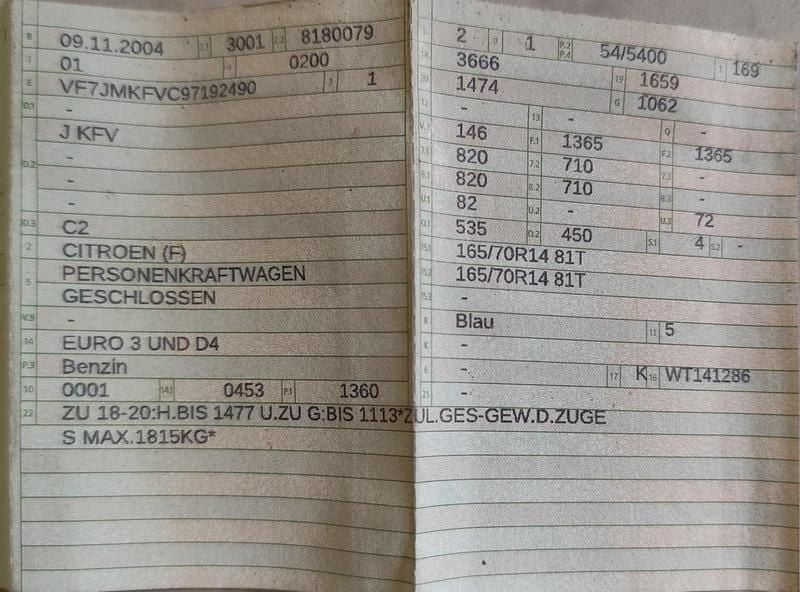 B 09.11.2004 2.1 3001 2.2 8180079
J 01 4 0200
E VF7JMKFVC97192490 3 1
D.1 -
J KFV
-
D.2 -
-
D.3 C2
2 CITROEN (F)
5 PERSONENKRAFTWAGEN
GESCHLOSSEN
V.9 -
14 EURO 3 UND D4
P.3 Benzin
10 0001 14.1 0453 P.1 1360
22 ZU 18-20:H.BIS 1477 U.ZU G:BIS 1113*ZUL.GES-GEW.D.ZUGE
S MAX.1815KG*
L 2 9 1 P.2 P.4 54/5400 T 169
18 3666 19 1659
20 1474 G 1062
12 - 13 - Q -
V.7 146 F.1 1365 F.2 1365
7.1 820 7.2 710 7.3 -
8.1 820 8.2 710 8.3 -
U.1 82 U.2 - U.3 72
O.1 535 O.2 450 S.1 4 S.2 -
15.1 165/70R14 81T
15.2 165/70R14 81T
15.3 -
R Blau 11 5
K -
6 - 17 K 16 WT141286
21 -